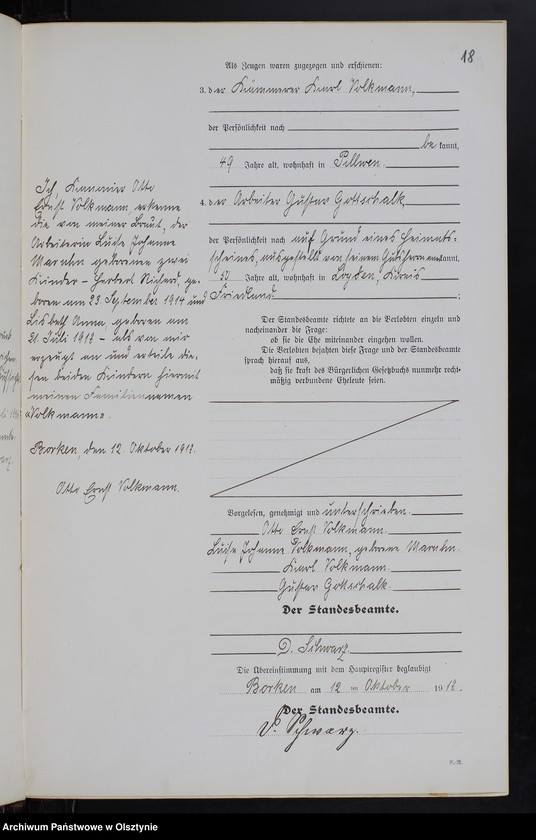 18
Als Zeugen waren zugezogen und erschienen:
3. der Kämmerer Karl Volkmann,
der Persönlichkeit nach
be kannt,
49 Jahre alt, wohnhaft in Pillwen.
4. der Arbeiter Gustav Gottschalk,
der Persönlichkeit nach auf Grund eines Heimats-
scheines, ausgestellt von seinem Gutsherrn anerkannt,
Jahre alt, wohnhaft in Loyden, Kreis
Friedland ;
Der Standesbeamte richtete an die Verlobten einzeln und
nacheinander die Frage:
ob sie die Ehe miteinander eingehen wollen.
Die Verlobten bejahten diese Frage und der Standesbeamte
sprach hierauf aus,
daß sie kraft des Bürgerlichen Gesetzbuchs nunmehr recht-
mäßig verbundene Eheleute seien.
Vorgelesen, genehmigt und unterschrieben.
Otto Ernst Volkmann.
Luise Johanne Volkmann, geborene Maruhn.
Karl Volkmann.
Gustav Gottschalk.
Der Standesbeamte.
D. Schwarz.
Die Übereinstimmung mit dem Hauptregister beglaubigt
Borken am 12 ten Oktober 1918.
Der Standesbeamte.
D. Schwarz.
Ich, Kanonier Otto
Ernst Volkmann, erkenne
die von meiner Braut, der
Arbeiterin Luise Johanne
Maruhn geborenen zwei
Kinder – Herbert Richard, ge-
boren am 23. September 1914 und
Lisbeth Anna, geboren am
21. Juli 1918 – als von mir
erzeugt an und erteile die-
sen beiden Kindern hiermit
meinen Familiennamen
„Volkmann“.
Borken, den 12. Oktober 1918.
Otto Ernst Volkmann.
Archiwum Państwowe w Olsztynie